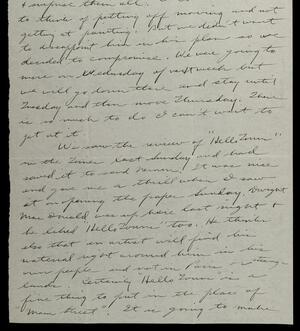 & surprise them all.
to think of putting off moving and not
getting at painting. But we didn't want
to disappoint him in his plan so we
decided to compromise. We were going to
move on Wednesday of next week but
we will go down there and stay until
Tuesday and then move Thursday. There
is so much to do I can't wait to
get at it.
We saw the review of "Hello Town"
in the Times last Sunday and had
saved it to send It was nice
and gave me a thrill when I saw
it on opening the paper Sunday. Dwight
Mac Donald was up here last night &
he liked "Hello Town" too. He thinks
also that an artist will find his
material right around him in his
own people and not in Paris or
Certainly Hello Town is a
fine thing to put in the place of
"Main Street". It is going to make